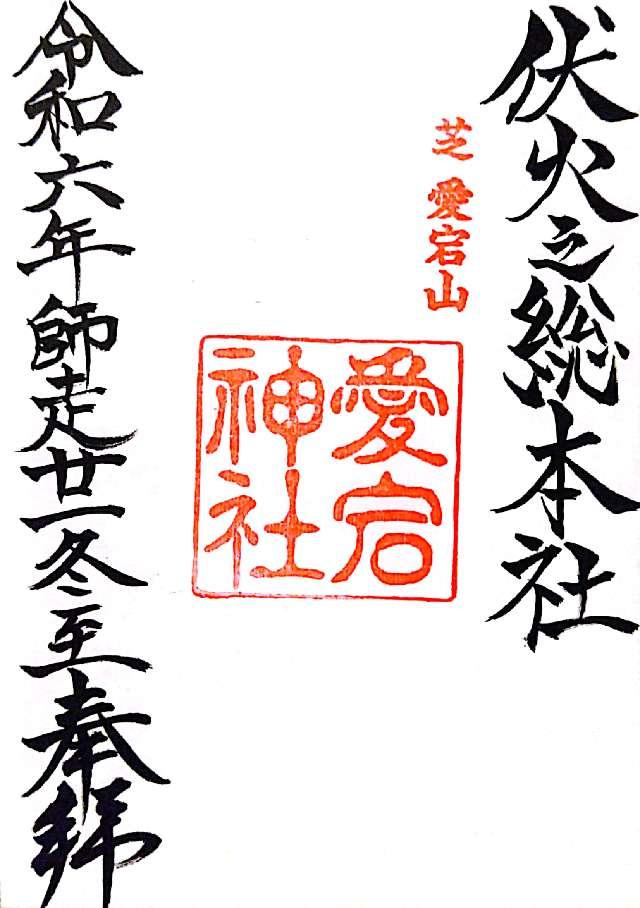 伏火之総本社
芝 愛宕山
愛宕
神社
令和六年師走廿一冬至奉拝